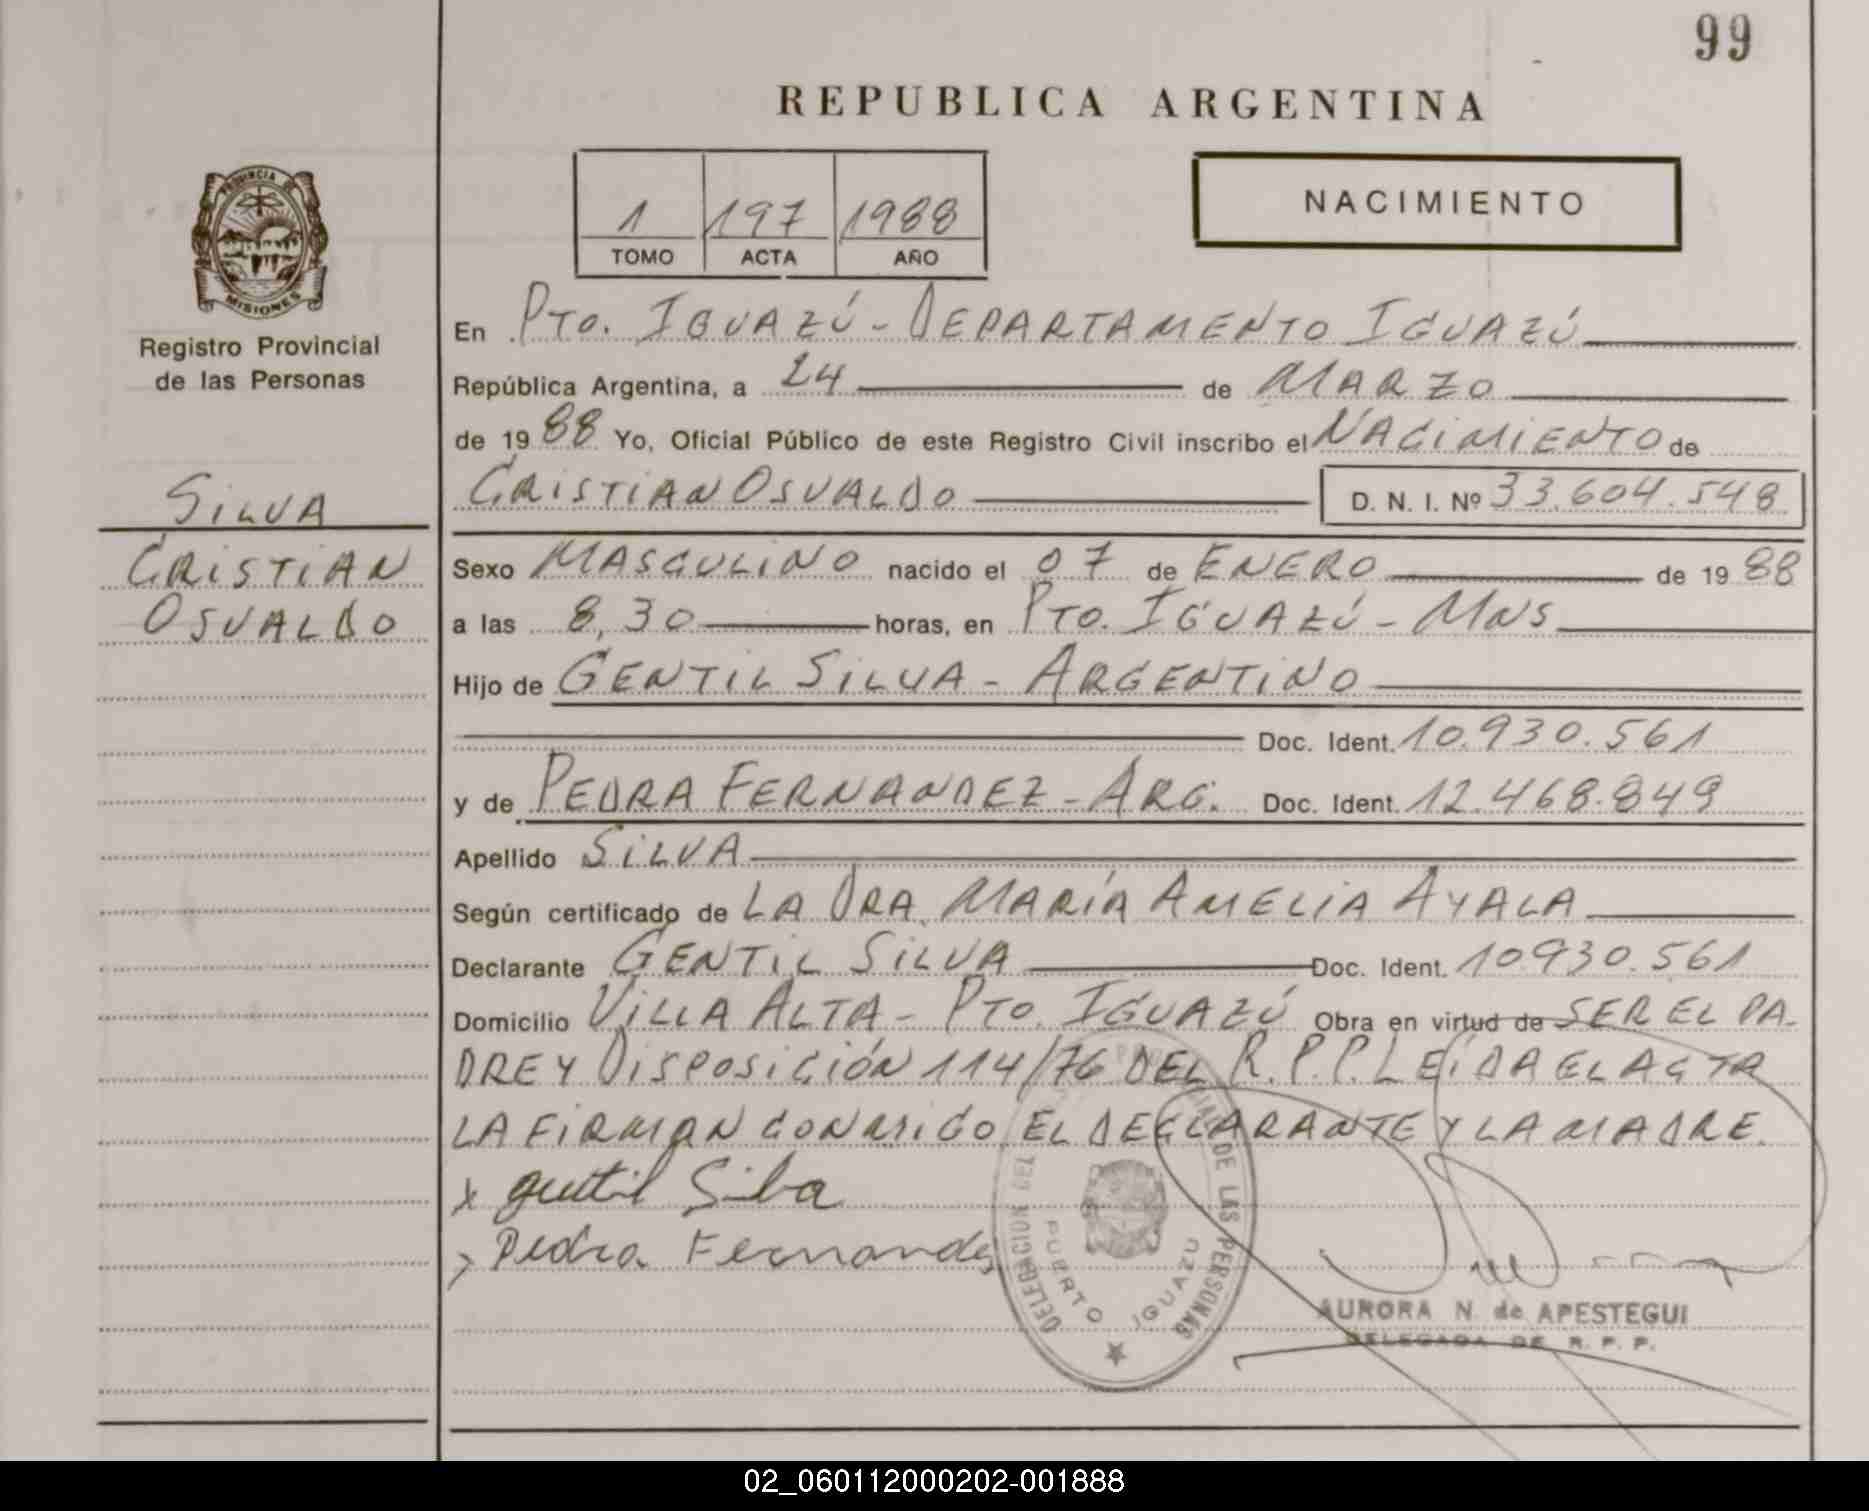 99
REPUBLICA ARGENTINA
PROVINCIA DE
MISIONES
Registro Provincial
de las Personas
1 197 1988
TOMO ACTA AÑO
NACIMIENTO
En PTO. IGUAZÚ - DEPARTAMENTO IGUAZÚ
República Argentina, a 24 de MARZO
de 1988 Yo, Oficial Público de este Registro Civil inscribo el NACIMIENTO de
CRISTIAN OSVALDO D. N. I. Nº 33.604.548
SILVA
CRISTIAN
OSVALDO
Sexo MASCULINO nacido el 07 de ENERO de 1988
a las 8,30 horas, en PTO. IGUAZÚ - MNS
Hijo de GENTIL SILVA - ARGENTINO
Doc. Ident. 10.930.561
y de PEDRA FERNANDEZ - ARG. Doc. Ident. 12.468.849
Apellido SILVA
Según certificado de LA DRA. MARÍA AMELIA AYALA
Declarante GENTIL SILVA Doc. Ident. 10930.561
Domicilio VILLA ALTA - PTO. IGUAZÚ Obra en virtud de SER EL PA-
DRE Y DISPOSICIÓN 114/76 DEL R.P.P. LEÍDA EL ACTA
LA FIRMAN CONMIGO EL DECLARANTE Y LA MADRE.
x gentil Silva
Pedra Fernandez
DELEGACION DEL DE LAS PERSONAS
PUERTO IGUAZU
AURORA N. de APESTEGUI
DELEGADA DE R. P. P.
02_060112000202-001888